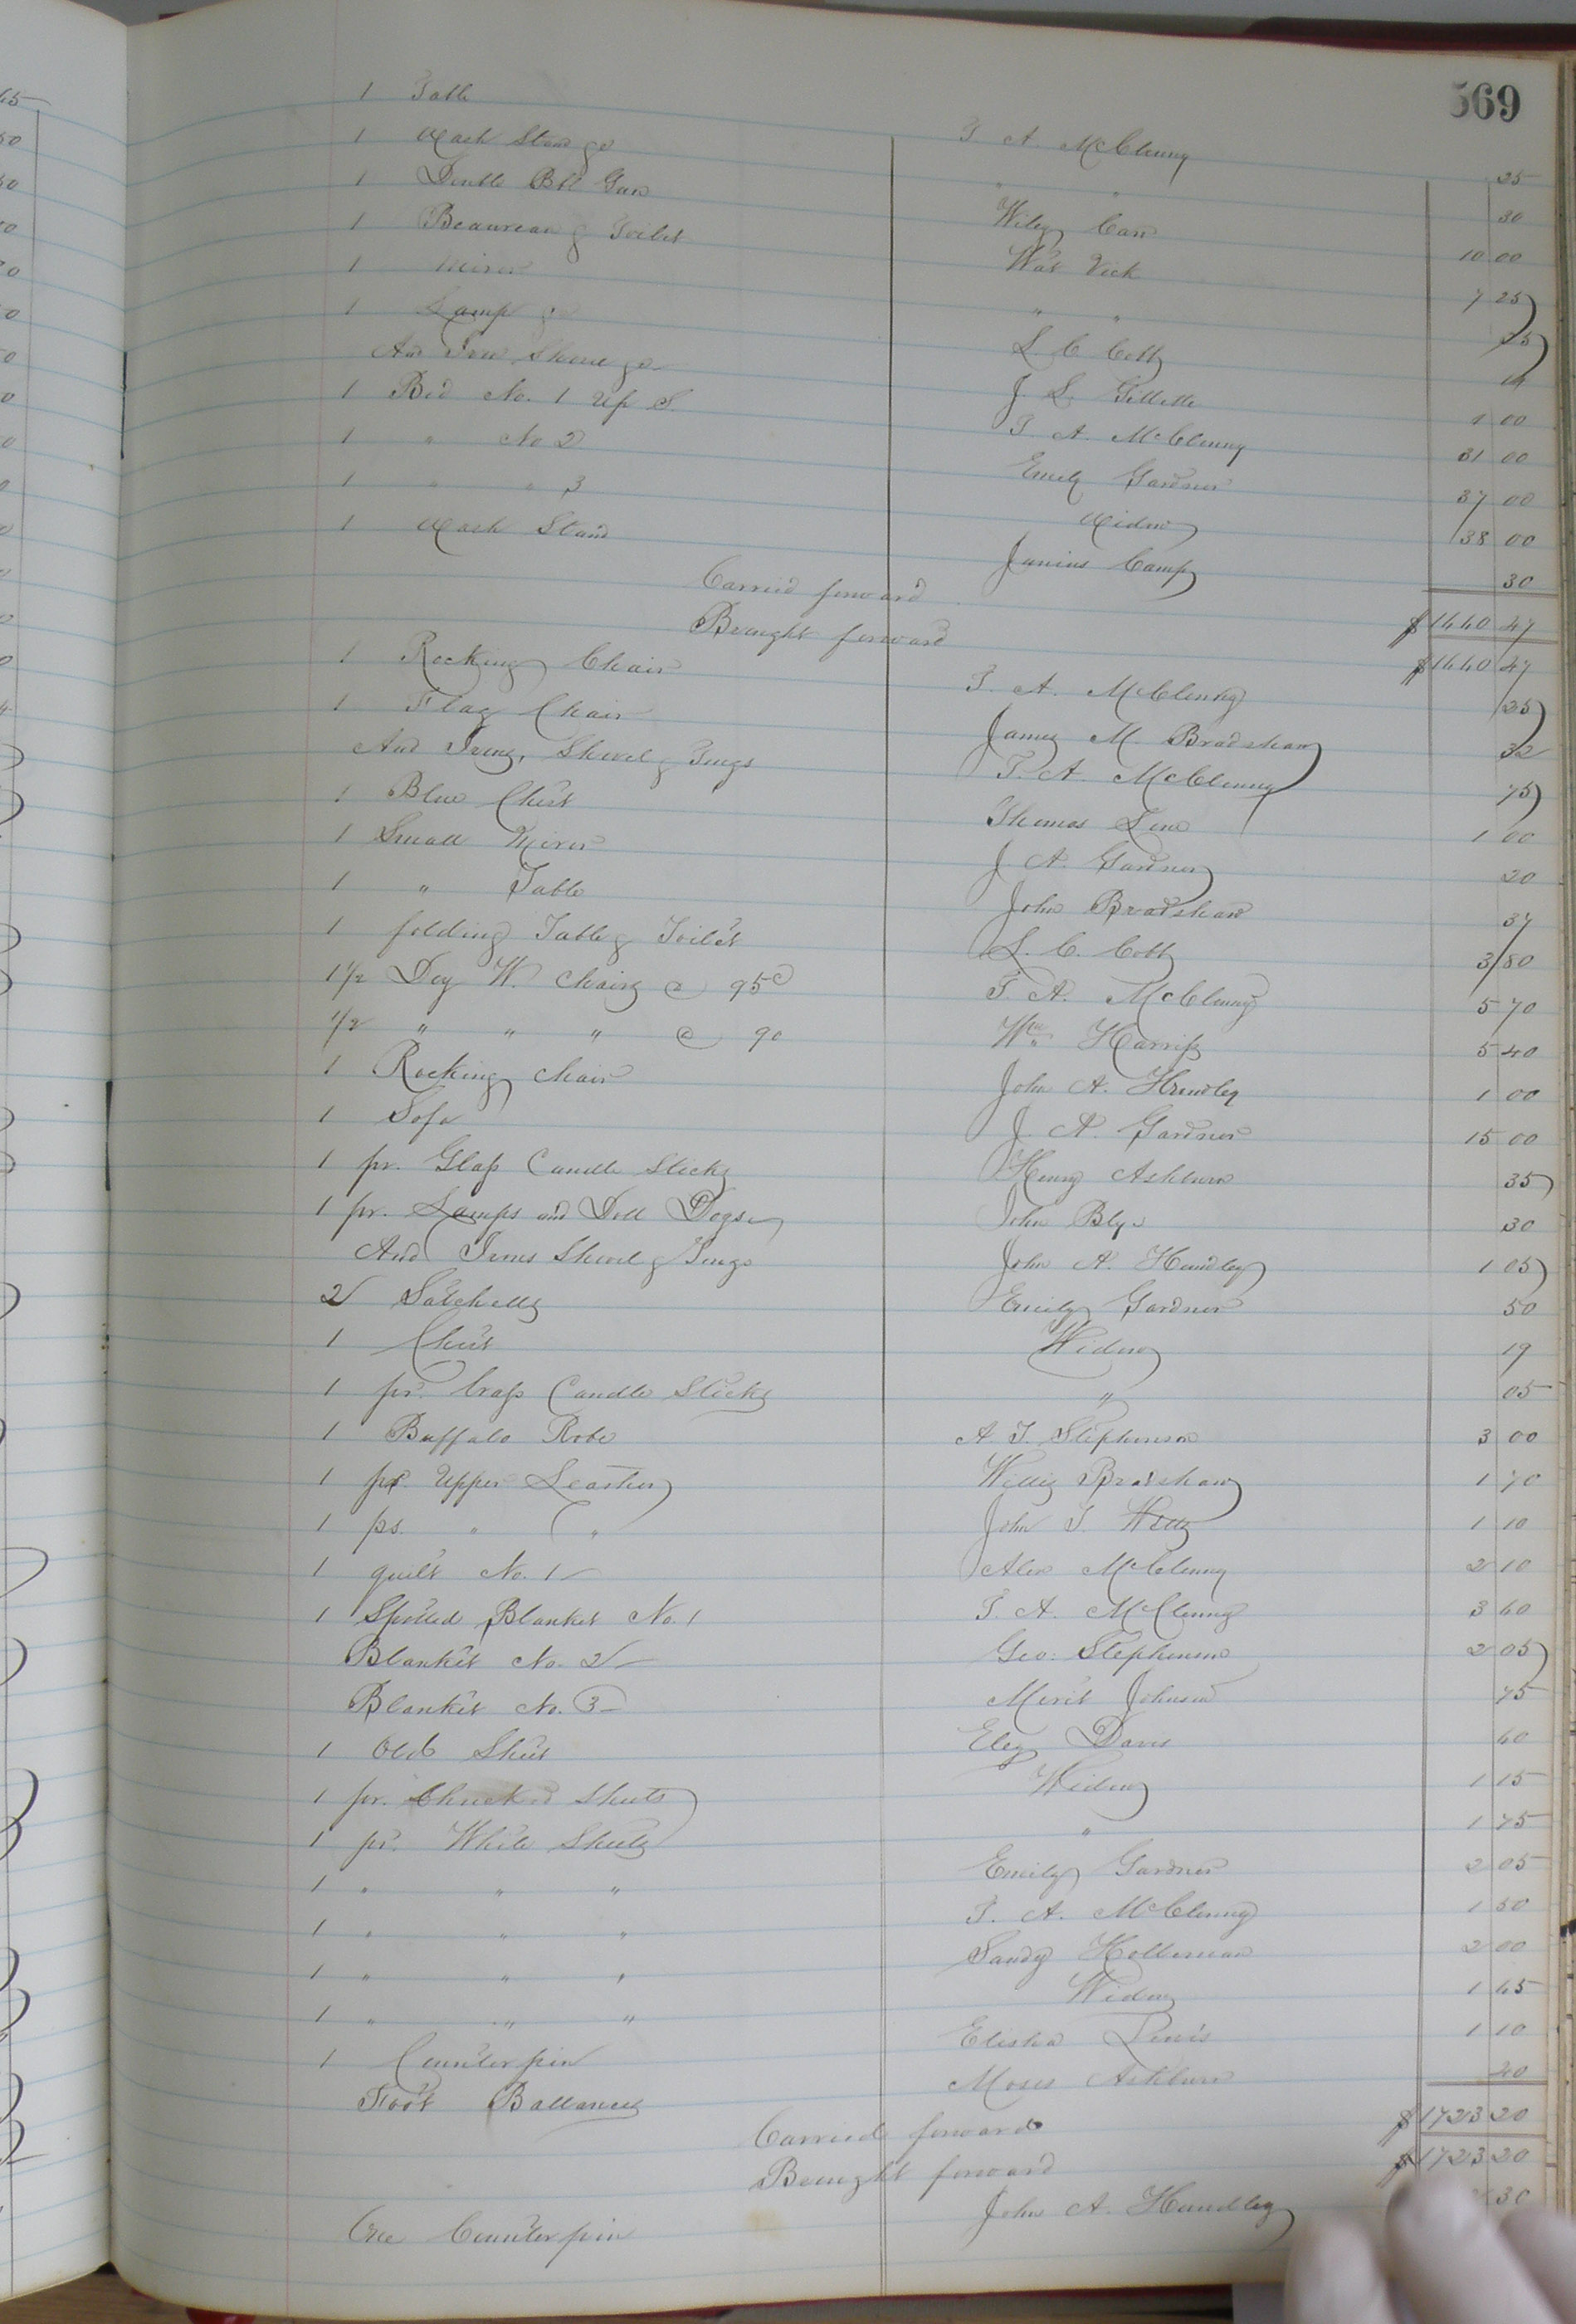 569
1 Table T A McClenny 25
1 Wash Stand &c " " 30
1 Double Bbl Gun Wiley Carr 10 00
1 Beaureau & Toilet Wat Vick 7 25
1 Miror " " 25
1 Lamp &c L. C. Cobb
And Iron Shovel &c J. L. Gillette 1 00
1 Bed No. 1 Up S. T A. McClenny 31 00
1 " No 2 Emily Gardner 37 00
1 " " 3 Widow 38 00
1 Wash Stand Junius Camp 30
Carried forward $1640 47
Brought forward $1640 47
1 Rocking Chair T. A. McClenny 25
1 Flag Chair James M. Bradshaw 32
And Irons, Shovel & Tongs T. A McClenny 75
1 Blue Chest Thomas 1 00
1 Small Miror J A. Gardner 20
1 " Table John Bradshaw 37
1 folding Table & Toilet L. C. Cobb 3 80
1/2 Doz W. Chairs @ 95c T. A. McClenny 5 70
1/2 " " " @ 90 Wm Harriss 5 40
1 Rocking chair John A. Hundley 1 00
1 Sofa J. A. Gardner 15 00
1 pr. Glass Candle Sticks Henry Ashburn 35
1 pr. Lamps and Doll Dogs John Blys 30
And Irons Shovel & Tongs John A. Hundley 1 05
2 Satchells Emily Gardner 50
1 Chest Widow 19
1 pr. brass Candle Sticks " 05
1 Buffalo Robe A. T. Stephenson 3 00
1 pr. Upper Leather Willis Bradshaw 1 70
1 ps. " " John T. 1 10
1 quilt No. 1 Alex McClenny 2 10
1 Spotted Blanket No. 1 T. A. McClenny 3 60
Blanket No. 2 Geo: Stephenson 2 05
Blanket No. 3 Merit Johnson 75
1 Old Sheet Eley Davis 60
1 pr. Checked Sheets Widow 1 15
1 pr. White Sheets " 1 75
1 " " " Emily Gardner 2 05
1 " " " T. A. McClenny 1 50
1 " " " Sandy Holleman 2 00
1 " " " Widow 1 65
1 Counterpin Elisha Lewis 1 10
Foot Ballances Moses Ashburn 20
Carried forward $1723 20
Brought forward $1723 20
One Counterpin John A. Hundley 30